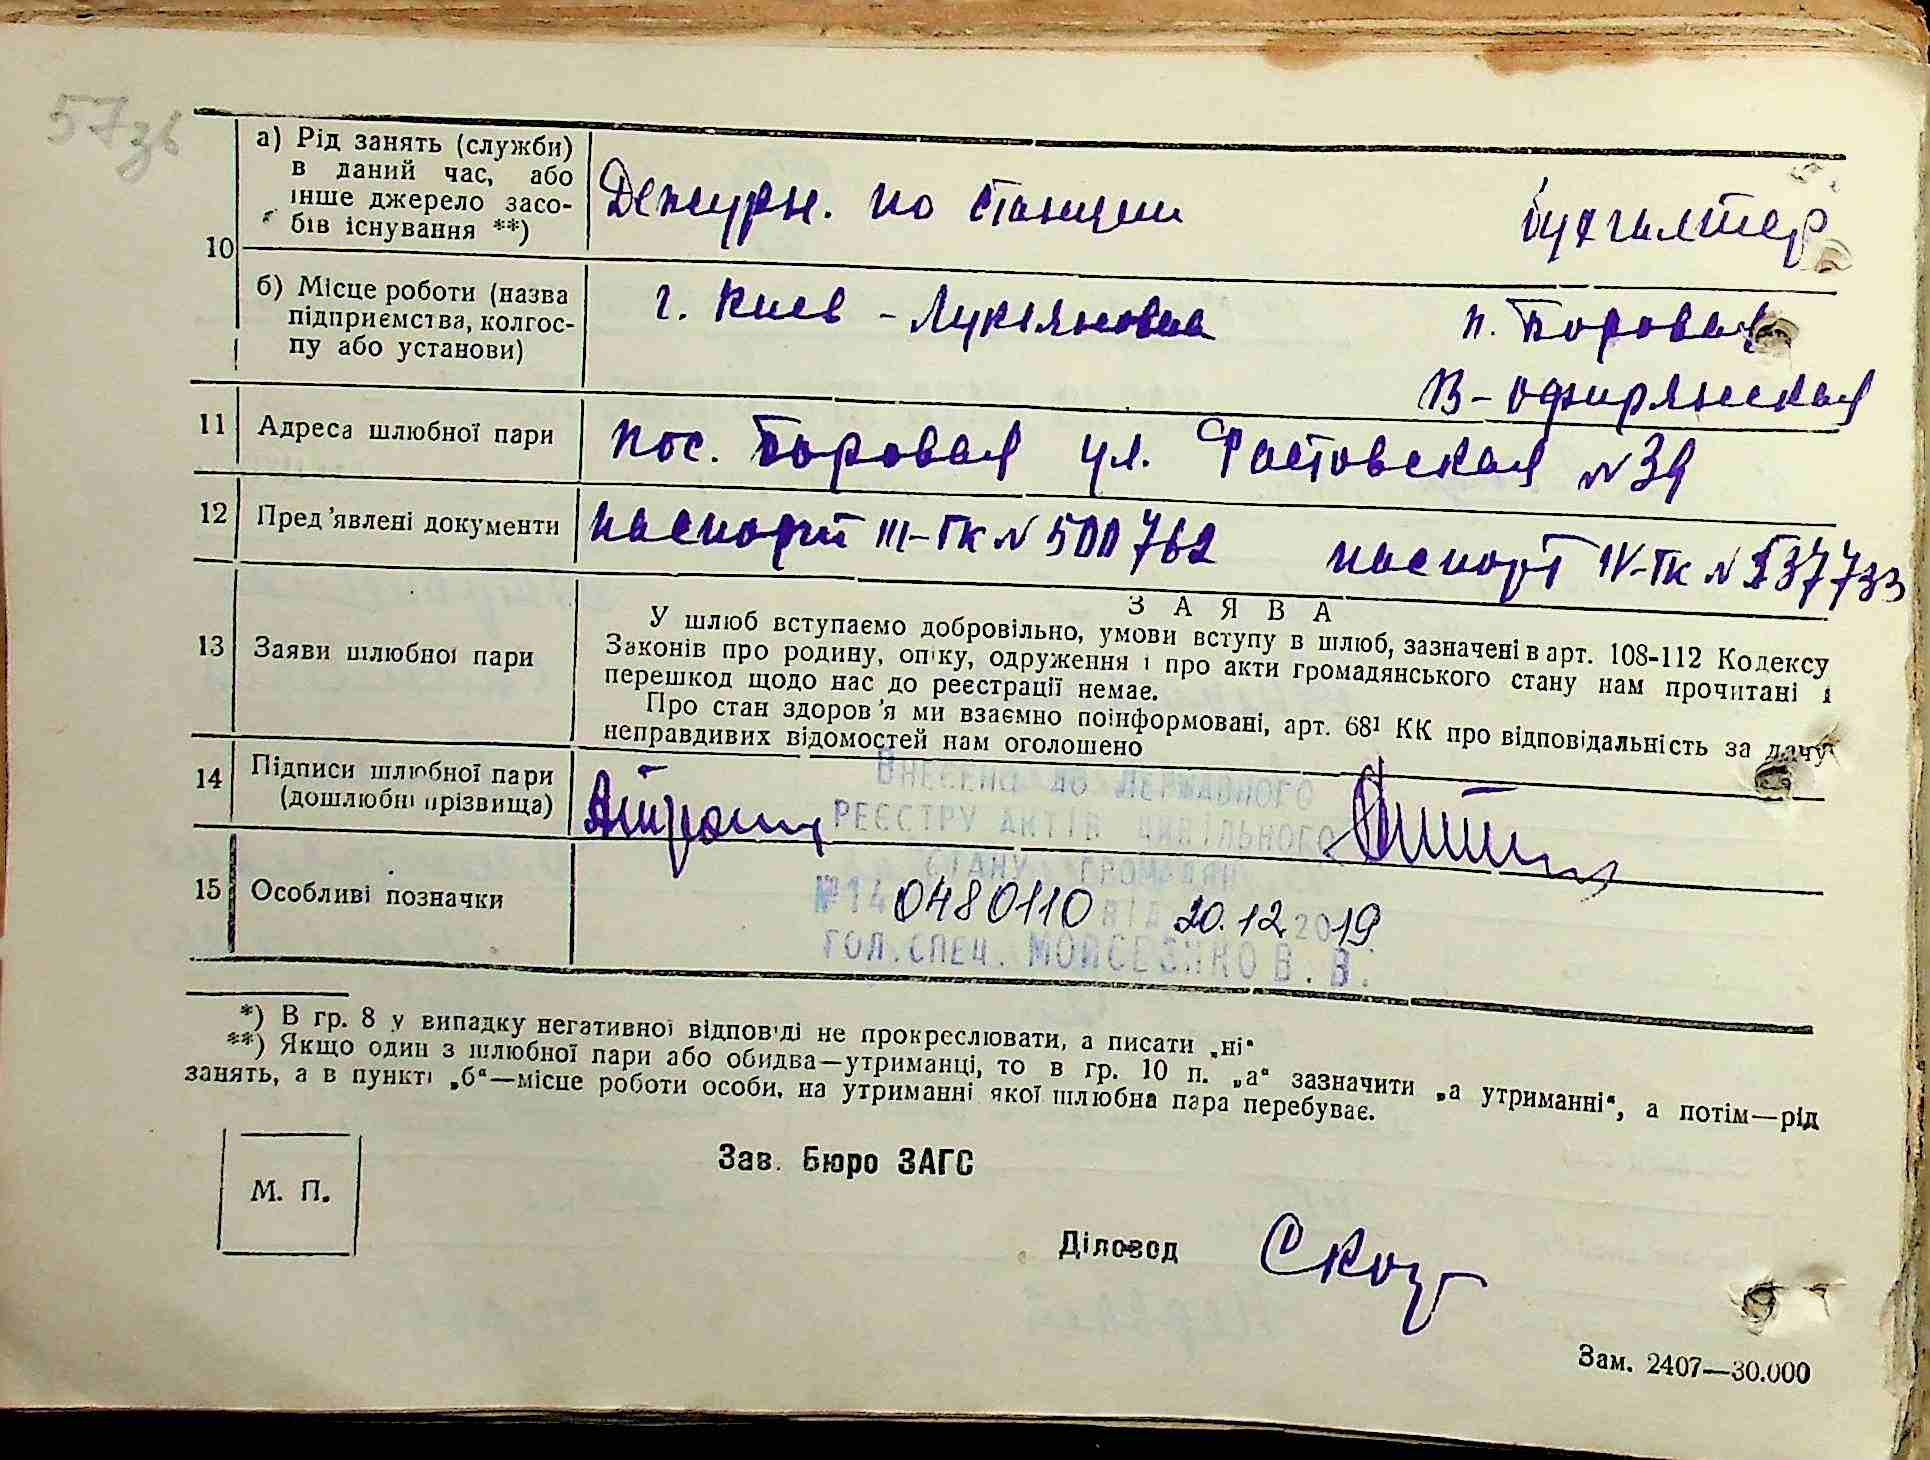 57зв
10
а) Рід занять (служби)
в даний час, або
інше джерело засо-
бів існування **)
Дежурн. по станции
бухгалтер
б) Місце роботи (назва
підприємства, колгос-
пу або установи)
г. Киев - Лукьяновка
п. Боровая
11 Адреса шлюбної пари
пос. Боровая ул. Фастовская №39
12 Пред'явлені документи
паспорт III-ТК № 500762
паспорт IV-ТК №
13 Заяви шлюбної пари
ЗАЯВА
У шлюб вступаємо добровільно, умови вступу в шлюб, зазначені в арт. 108-112 Кодексу
Законів про родину, опіку, одруження і про акти громадянського стану нам прочитані і
перешкод щодо нас до реєстрації немає.
Про стан здоров'я ми взаємно поінформовані, арт. 68¹ КК про відповідальність за дачу
неправдивих відомостей нам оголошено
14 Підписи шлюбної пари
(дошлюбні прізвища)
ВНЕСЕНО ДО ДЕРЖАВНОГО
РЕЄСТРУ АКТІВ ЦИВІЛЬНОГО
СТАНУ ГРОМАДЯН
15 Особливі позначки
№14 0480110 від 20.12.2019
ГОЛ.СПЕЦ. МОЙСЕЄНКО В. В.
*) В гр. 8 у випадку негативної відповіді не прокреслювати, а писати „ні“
**) Якщо один з шлюбної пари або обидва—утриманці, то в гр. 10 п. „а“ зазначити „а утриманні“, а потім—рід
занять, а в пункті „б“—місце роботи особи, на утриманні якої шлюбна пара перебуває.
М. П.
Зав. Бюро ЗАГС
Діловод
Зам. 2407—30.000